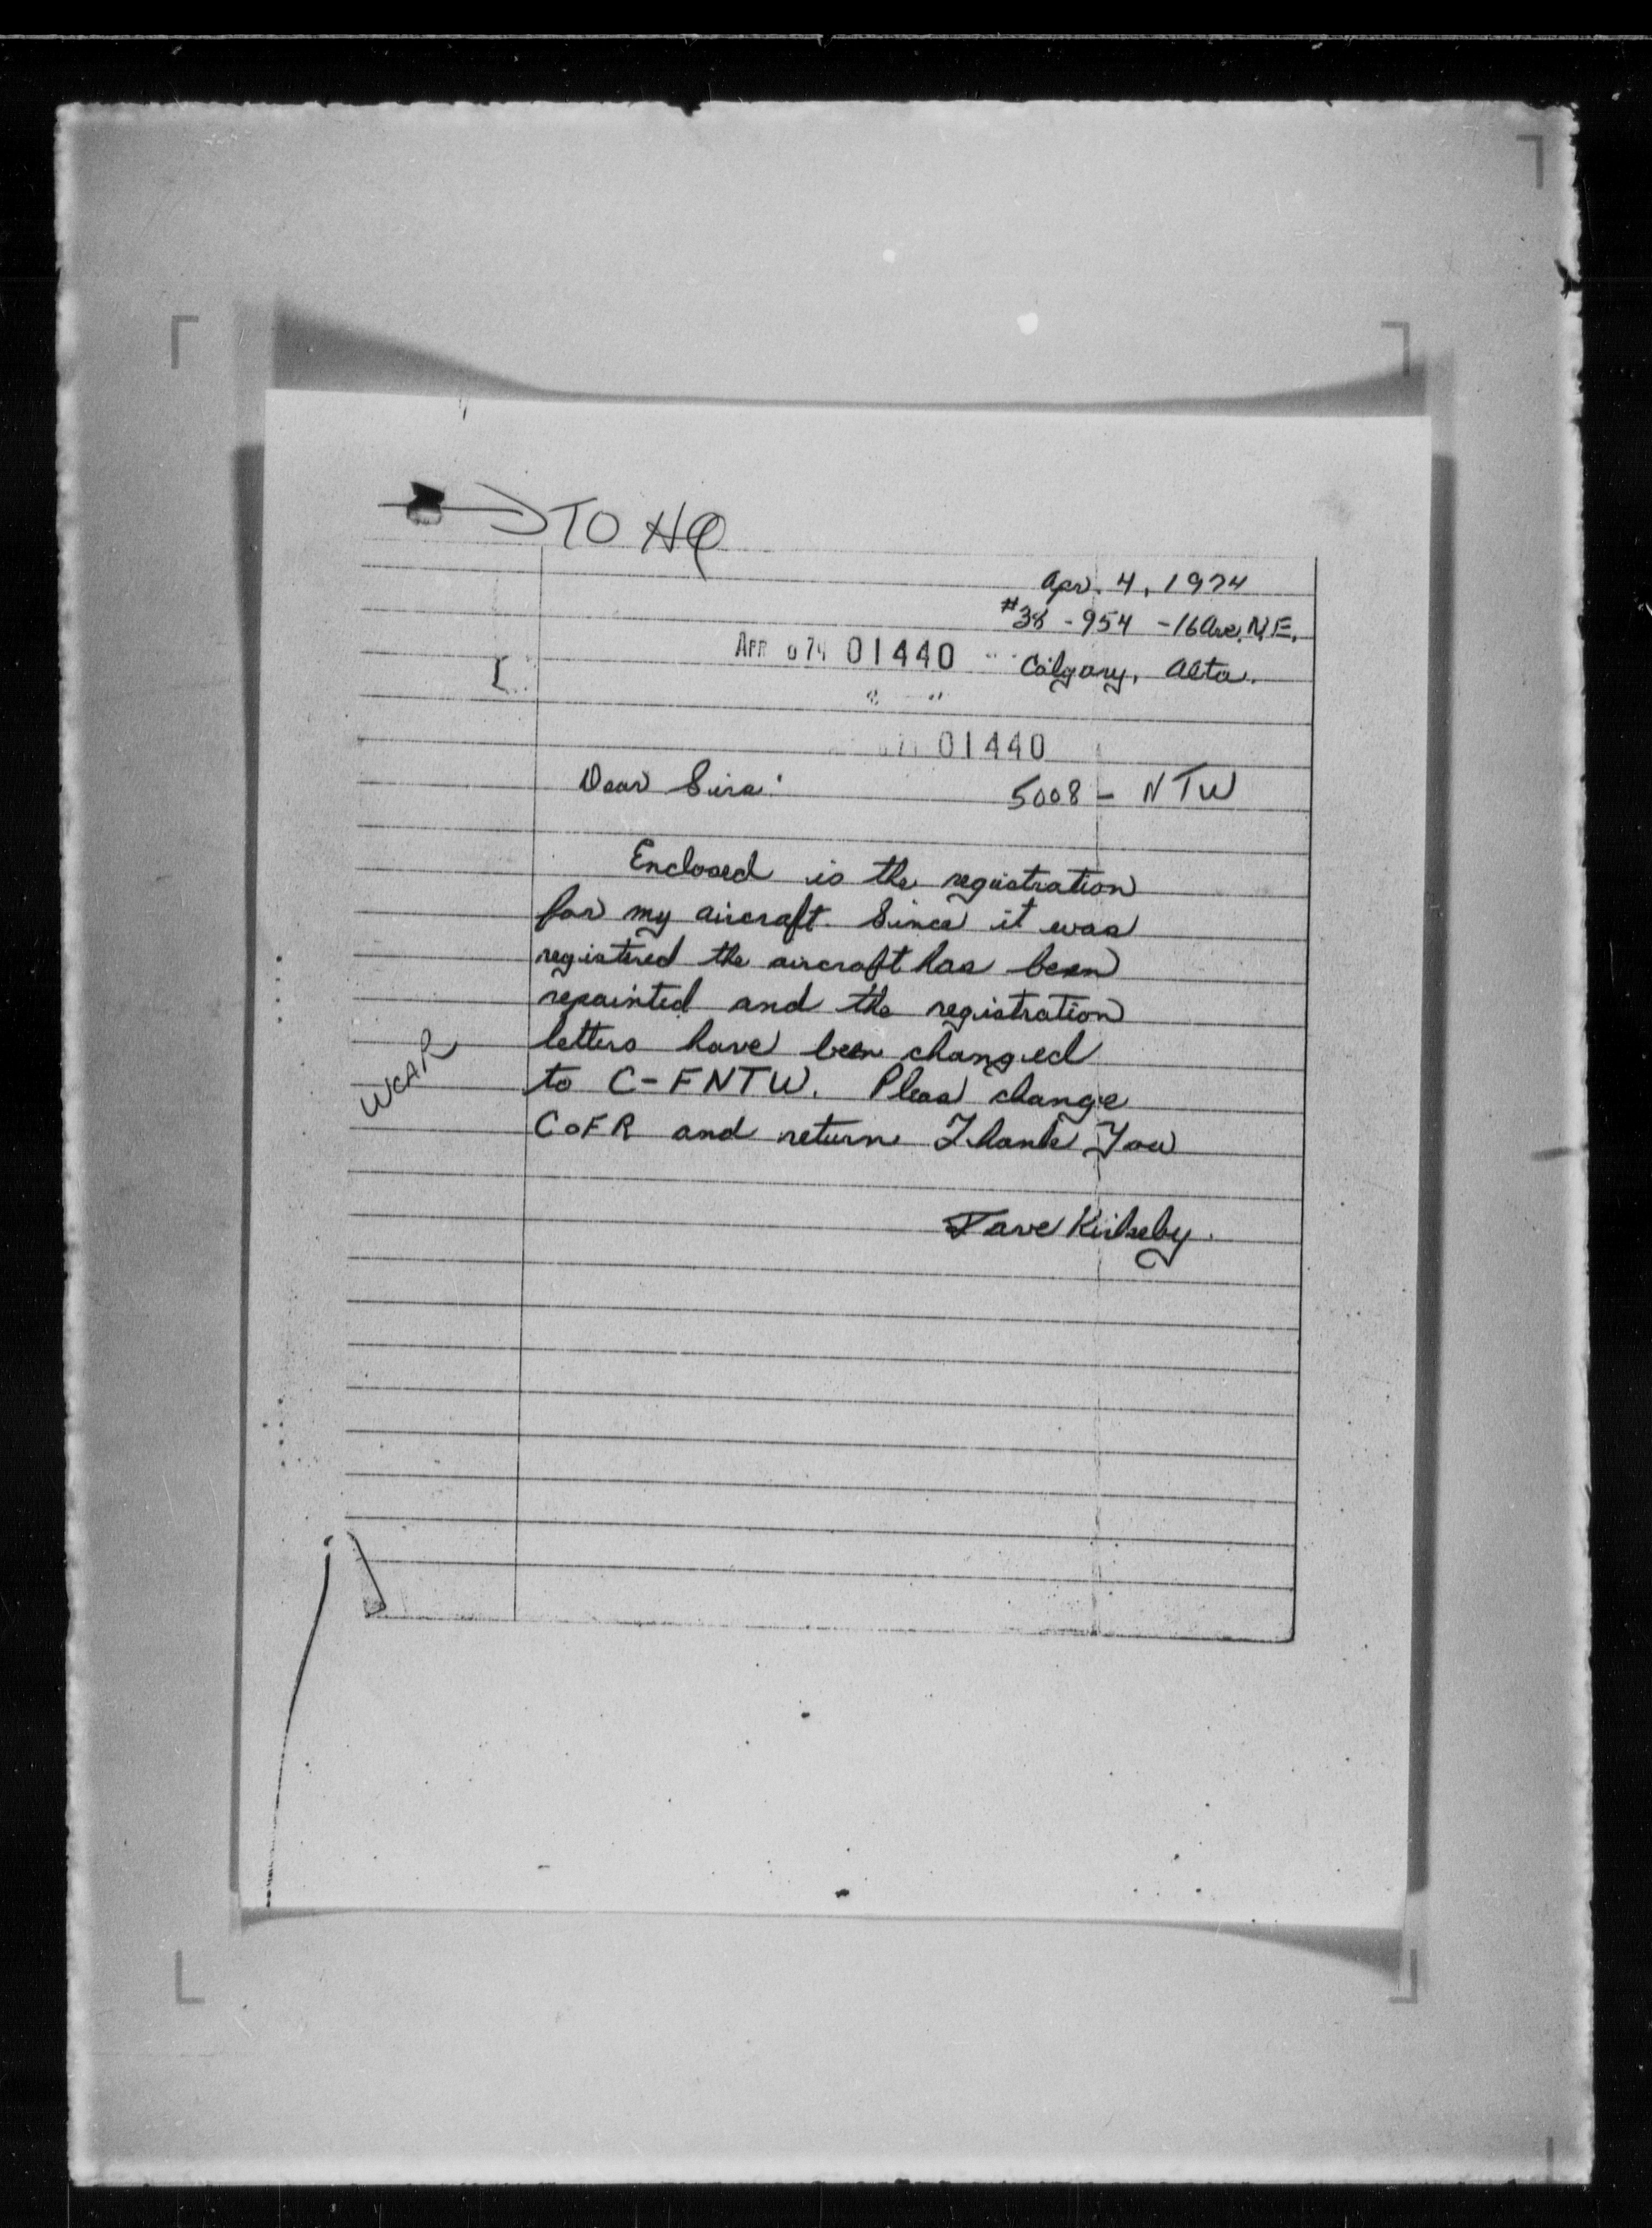 TO HQ
Apr. 4, 1974
#38 - 954 - 16 Ave. N.E.
APR 074 01440
Calgary, Alta.
01440
Dear Sirs:
5008 - NTW
Enclosed is the registration
for my aircraft. Since it was
registered the aircraft has been
repainted and the registration
letters have been changed
to C-FNTW. Pleas change
C of R and return Thank You
WCAR
Dave Kirkeby.